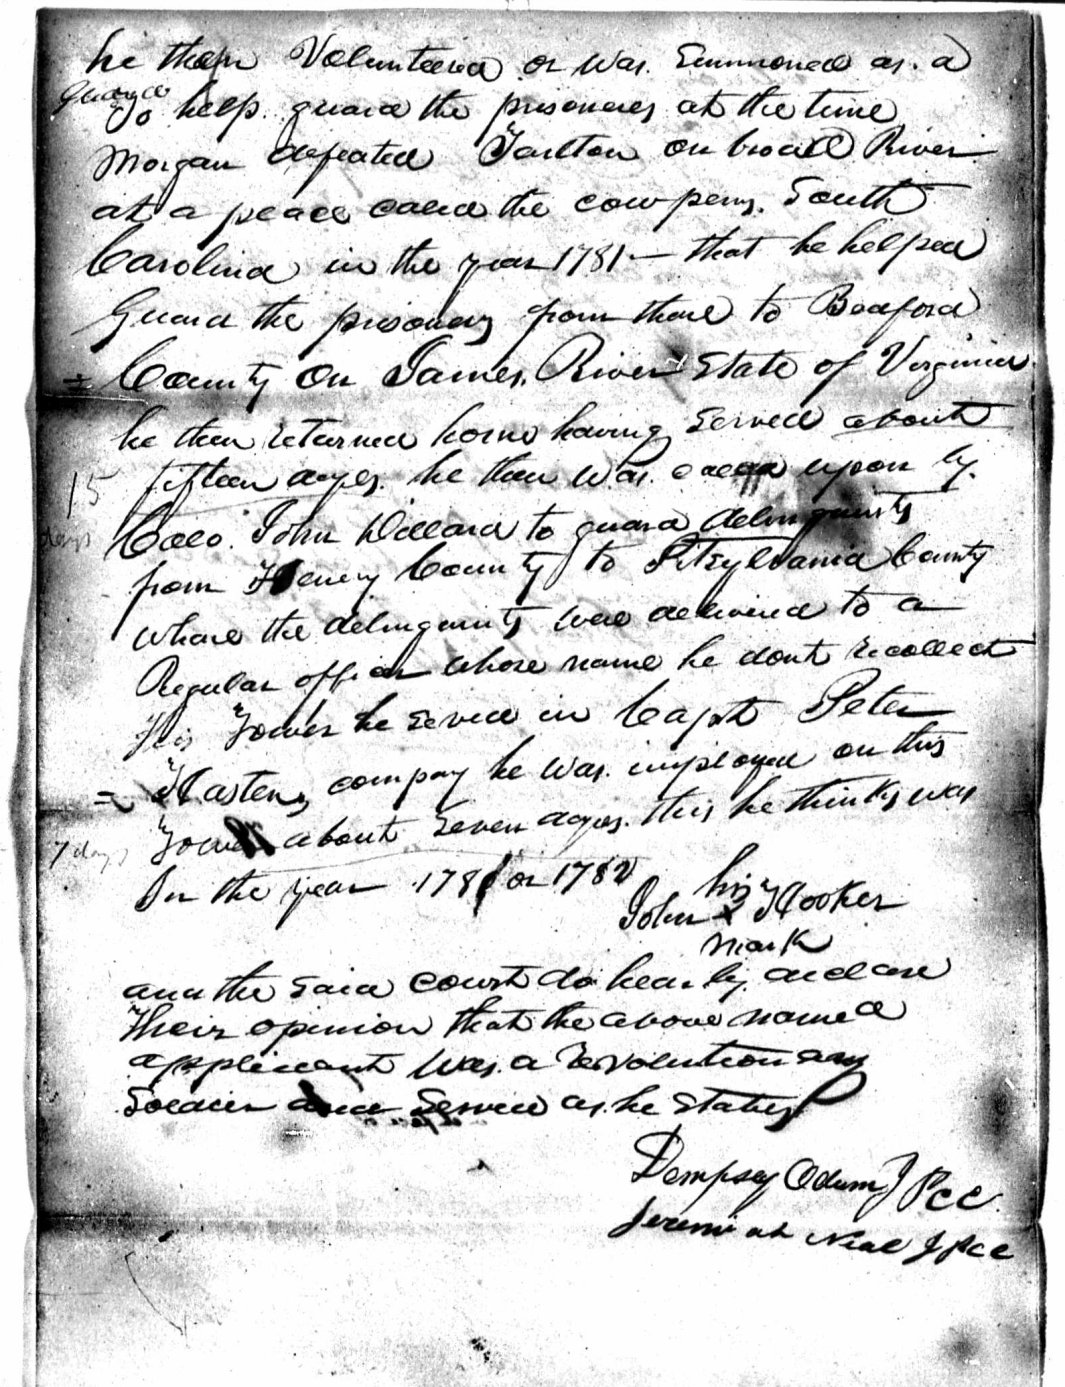 he then Volunteered or was Summoned as a
guard
To help guard the prisoners at the time
Morgan defeated Tarlton on broad River
at a peace caled the cowpens. South
Carolina in the year 1781 — that he helped
Guard the prisoners from thare to Bedford
= County On James River State of Virginia
he then returned home having served about
15 fifteen days. he then was called upon by
days Collo. John Dillard to guard delinquints
from Henery County to Pitsylvania County
whare the delinquints ware delivered to a
Regular officer whose name he dont recollect
this Tower he served in Capt Peter
= Hastens compay he was imployed on this
7 days Tower about Seven days. this he thinks was
In the year 1781 or 1782
his
John x Hooker
mark
and the said court do hearby declare
their opinion that the above named
applicant was a revolutionary
Soldier and Served as he States
Dempsey Odum J P C C
Jeremiah Neal J P C C